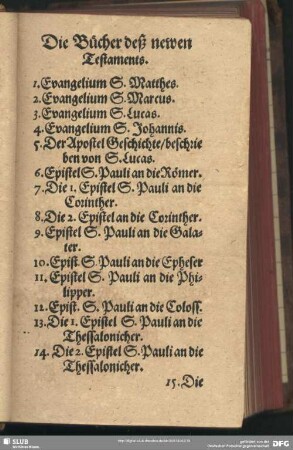 Die Bücher deß newen
Testaments.
1. Evangelium S. Matthes.
2. Evangelium S. Marcus.
3. Evangelium S. Lucas.
4. Evangelium S. Johannis.
5. Der Apostel Geschichte/beschrie
ben von S. Lucas.
6. Epistel S. Pauli an die Römer.
7. Die 1. Epistel S. Pauli an die
Corinther.
8. Die 2. Epistel an die Corinther.
9. Epistel S. Pauli an die Gala-
ter.
10. Epist. S. Pauli an die Epheser
11. Epistel S. Pauli an die Phi-
lipper.
12. Epist. S. Pauli an die Coloss.
13. Die 1. Epistel S. Pauli an die
Thessalonicher.
14. Die 2. Epistel S. Pauli an die
Thessalonicher.
15. Die
SLUB
gefördert von der
DFG